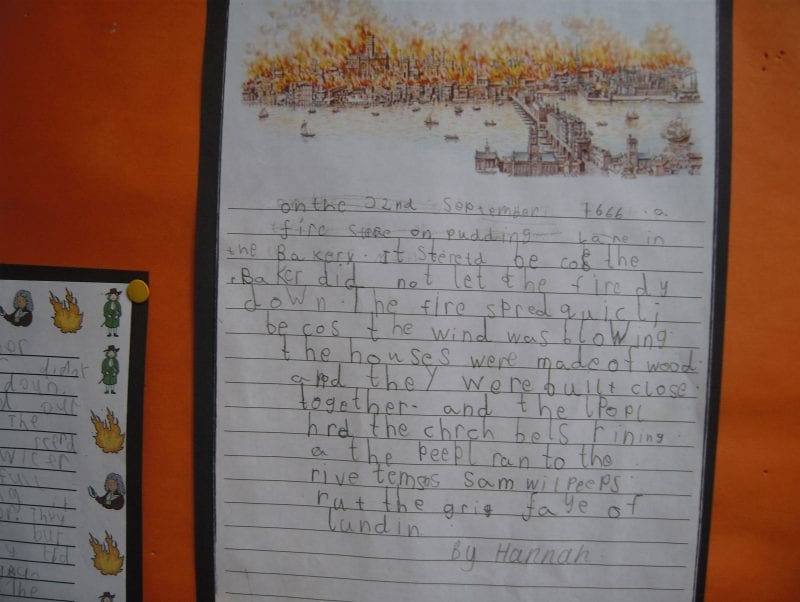 on the 22nd September 1666 . a
fire stree on pudding Lane in
the Bakery . it steretd be cos the
Baker did not let the fire dy
down . The fire spred quicli
be cos the wind was blowing .
the houses were made of wood .
and they were built close .
together . and the Popl
hrd the chrch bels rining .
a the peepl ran to the
rive temses Sam wil Peeps
rut the grig faye of
lundin
By Hannah
or
didnt
doun
out
The
it
They
but
The